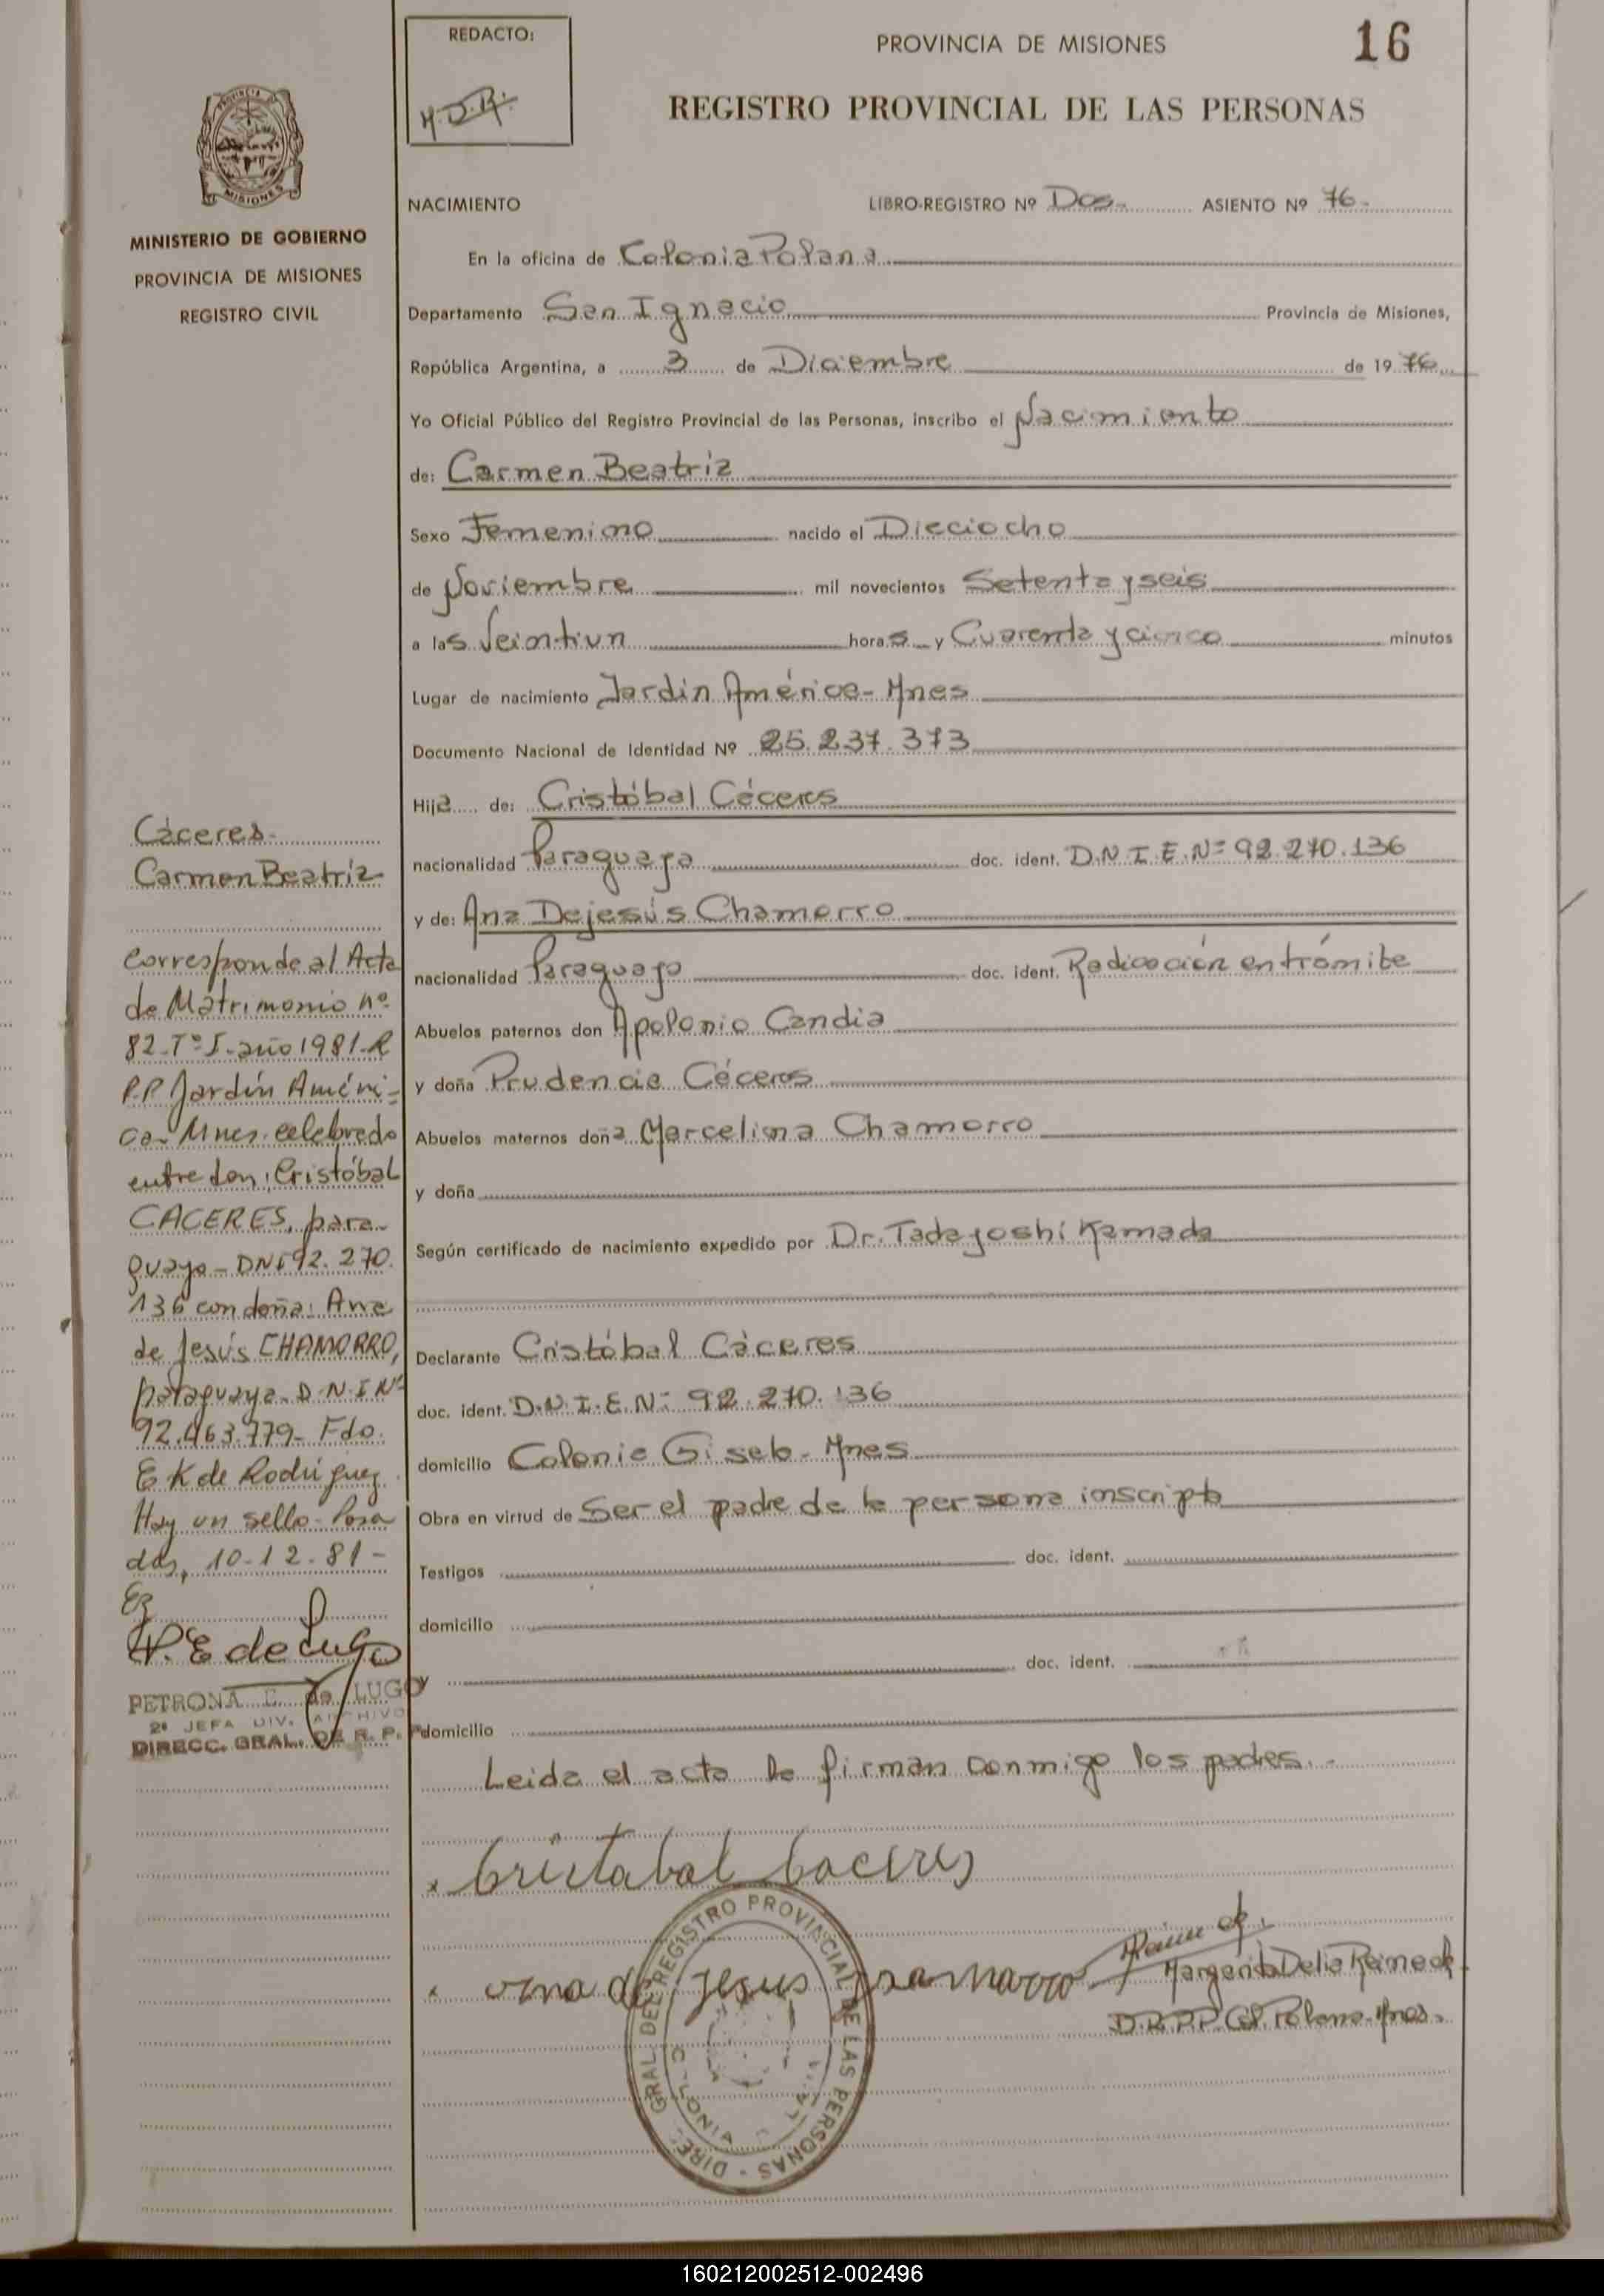 REDACTO:
M.D.R.
PROVINCIA DE MISIONES
16
REGISTRO PROVINCIAL DE LAS PERSONAS
PROVINCIA DE
MISIONES
MINISTERIO DE GOBIERNO
PROVINCIA DE MISIONES
REGISTRO CIVIL
NACIMIENTO LIBRO-REGISTRO Nº Dos- ASIENTO Nº 76-
En la oficina de Colonia Polana
Departamento San Ignacio Provincia de Misiones,
República Argentina, a 3 de Diciembre de 1976
Yo Oficial Público del Registro Provincial de las Personas, inscribo el Nacimiento
de: Carmen Beatriz
Sexo Femenino nacido el Dieciocho
de Noviembre mil novecientos Setenta y seis
a las Veintiun horas y Cuarenta y cinco minutos
Lugar de nacimiento Jardín América- Mnes
Documento Nacional de Identidad Nº 25.237.373
Hija de: Cristóbal Cáceres
nacionalidad Paraguaya doc. ident. D.N.I.E.Nº 92.270.136
y de: Ana Dejesús Chamorro
nacionalidad Paraguaya doc. ident. Radicación en trámite
Abuelos paternos don Apolonio Candia
y doña Prudencia Cáceres
Abuelos maternos doña Marcelina Chamorro
y doña
Según certificado de nacimiento expedido por Dr. Tadayoshi Kamada
Declarante Cristóbal Cáceres
doc. ident. D.N.I.E.Nº 92.270.136
domicilio Colonia Gisela- Mnes
Obra en virtud de Ser el padre de la persona inscripta
Testigos doc. ident.
domicilio
y doc. ident.
domicilio
Leida el acta la firman conmigo los padres.-
Cáceres-
Carmen Beatriz
Corresponde al Acta
de Matrimonio nº
82-Tº I-año 1981-R
P.P Jardín Améri-
ca- Mnes- celebrado
entre don: Cristóbal
CACERES, para-
guayo- DNI 92.270.
136 con doña: Ana
de Jesús CHAMORRO,
paraguaya- D.N.I Nº
92.463.779- Fdo.
E K de Rodríguez
Hay un sello- Posa
das, 10-12-81-
Eg
P. E de Lugo
PETRONA E. de LUGO
2º JEFA DIV. ARCHIVO
DIRECC. GRAL. DE R. P. P
x Cristabal Caceres
x ana de Jesus
Margarita Delia Raine de
D.R.P.P. Col. Polana-Mnes.
DIREC. GRAL. DEL REGISTRO PROVINCIAL DE LAS PERSONAS -
COLONIA
160212002512-002496